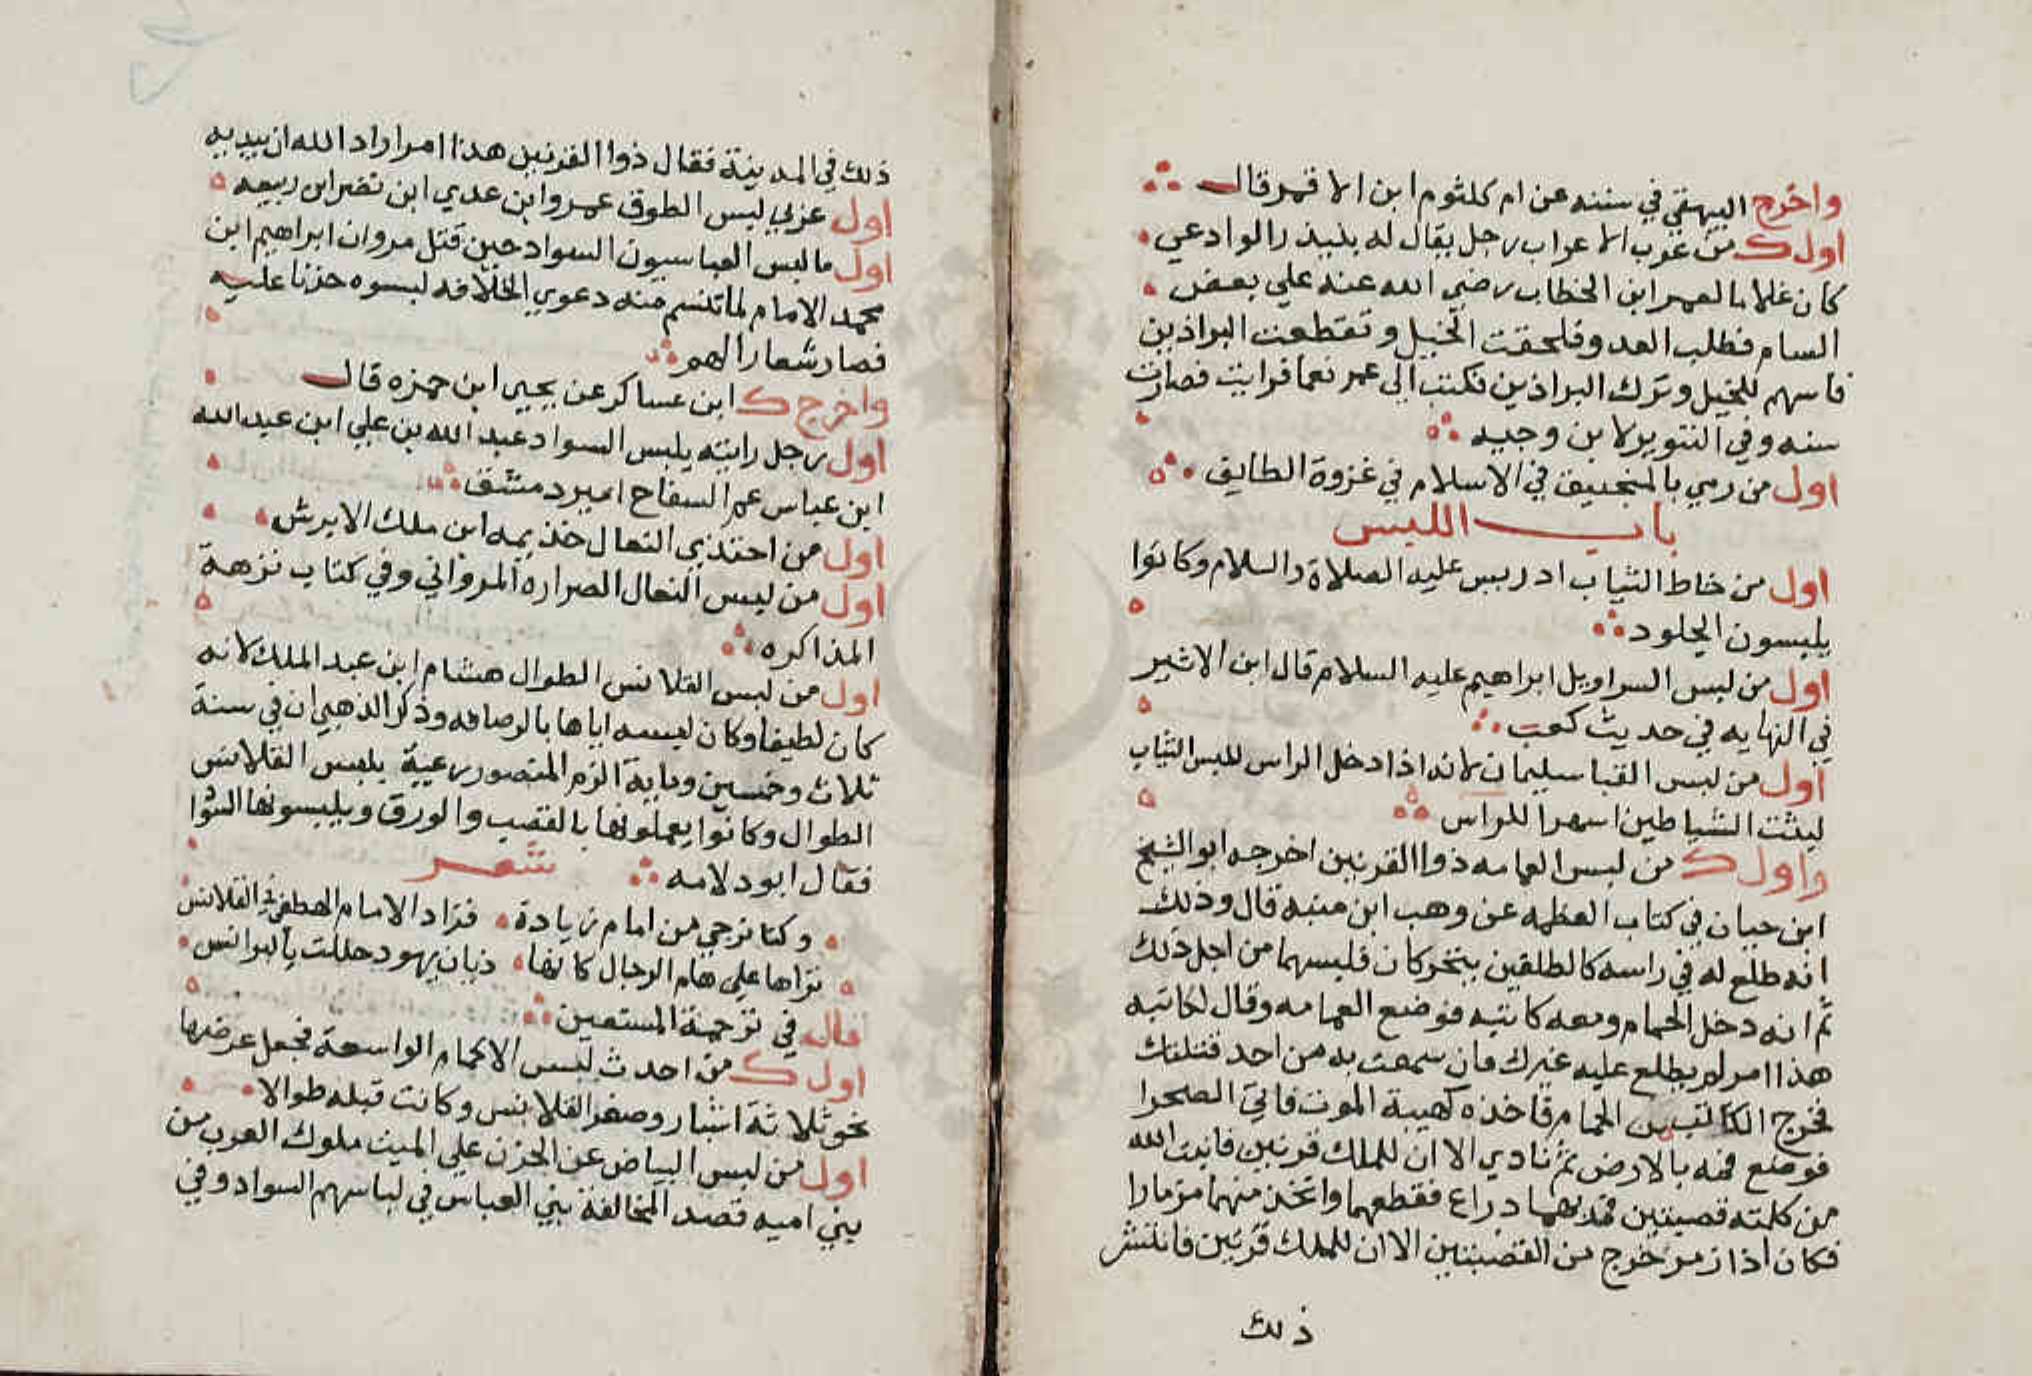 واخرج البيهقي في سننه عن ام كلثوم ابن الاقمر قال
اول من عرب الاعراب رجل يقال له بلبيذر الوادعي
كان غلاما لعمر ابن الخطاب رضي الله عنه علي بعض
السام فطلب العدو فلحقت الخيل وتقطعت البراذين
فاسهم للخيل وترك البراذين فكتب الى عمر نعما فرايت فصارت
سنه وفي التنوير لابن وجيه
اول من رمي بالمنجنيق في الاسلام في غزوة الطايف
باب اللبس
اول من خاط الثياب ادريس عليه الصلاة والسلام وكانوا
يلبسون الجلود
اول من لبس السراويل ابراهيم عليه السلام قال ابن الاثير
في النهايه في حديث كعب
اول من لبس القبا سليمان لانه اذا دخل الراس للبس الثياب
لبثت الشياطين اسهرا للراس
واول من لبس العمامه ذوا القرنين اخرجه ابوالشيخ
ابن حيان في كتاب العظمه عن وهب ابن منبه قال وذلك
انه طلع له في راسه كالطلقين يتحركان فلبسهما من اجل ذلك
ثم انه دخل الحمام ومعه كاتبه فوضع العمامه وقال لكاتبه
هذا امر لم يطلع عليه غيرك فان سمعت به من احد قتلتك
فخرج الكاتب من الحمام فاخذه كهيبة الموت فاتي الصحرا
فوضع فمه بالارض ثم نادي الا ان للملك قرنين فانبت الله
من كلمته قصبتين فمر بهما راع فقطعهما واتخذ منهما مزمارا
فكان اذا زمر خرج من القصبتين الا ان للملك قرنين فانتشر
ذلك
ذلك في المدينة فقال ذوا القرنين هذا امر اراد الله ان يبديه
اول عربي لبس الطوق عمرو ابن عدي ابن نضر ابن ربيعه
اول ما لبس العباسيون السواد حين قتل مروان ابراهيم ابن
محمد الامام لما تنسم منه دعوي الخلافه لبسوه حزنا عليه
فصار شعارا لهم
واخرج ابن عساكر عن يحيي ابن حمزه قال
اول رجل رايته يلبس السواد عبد الله بن علي ابن عبدالله
ابن عباس عم السفاح امير دمشق
اول من احتذي النعال خذيمه ابن ملك الابرش
اول من لبس النعال الصراره المرواني وفي كتاب نزهة
المذاكره
اول من لبس القلانس الطوال هشام ابن عبد الملك لانه
كان لطيفا وكان لبسه اياها بالرصافه وذكر الذهبي ان في سنة
ثلاث وخمسين وماية الزم المنصور رعيية يلبس القلانس
الطوال وكانوا يعملونها بالقصب والورق ويلبسونها السوا
فقال ابو دلامه شعر
وكنا نرجي من امام زيادة فزاد الامام المصطفي في القلانس
نراها علي هام الرجال كانها دنان يهود جللت بالبرانس
قال في ترجمة المستعين
اول من احدث لبس الاكمام الواسعة فجعل عرضها
نحو ثلاثة اشبار وصغر القلانس وكانت قبله طوالا
اول من لبس البياض عن الحزن علي الميت ملوك العرب من
بني اميه قصد المخالفة بني العباس في لباسهم السواد وفي